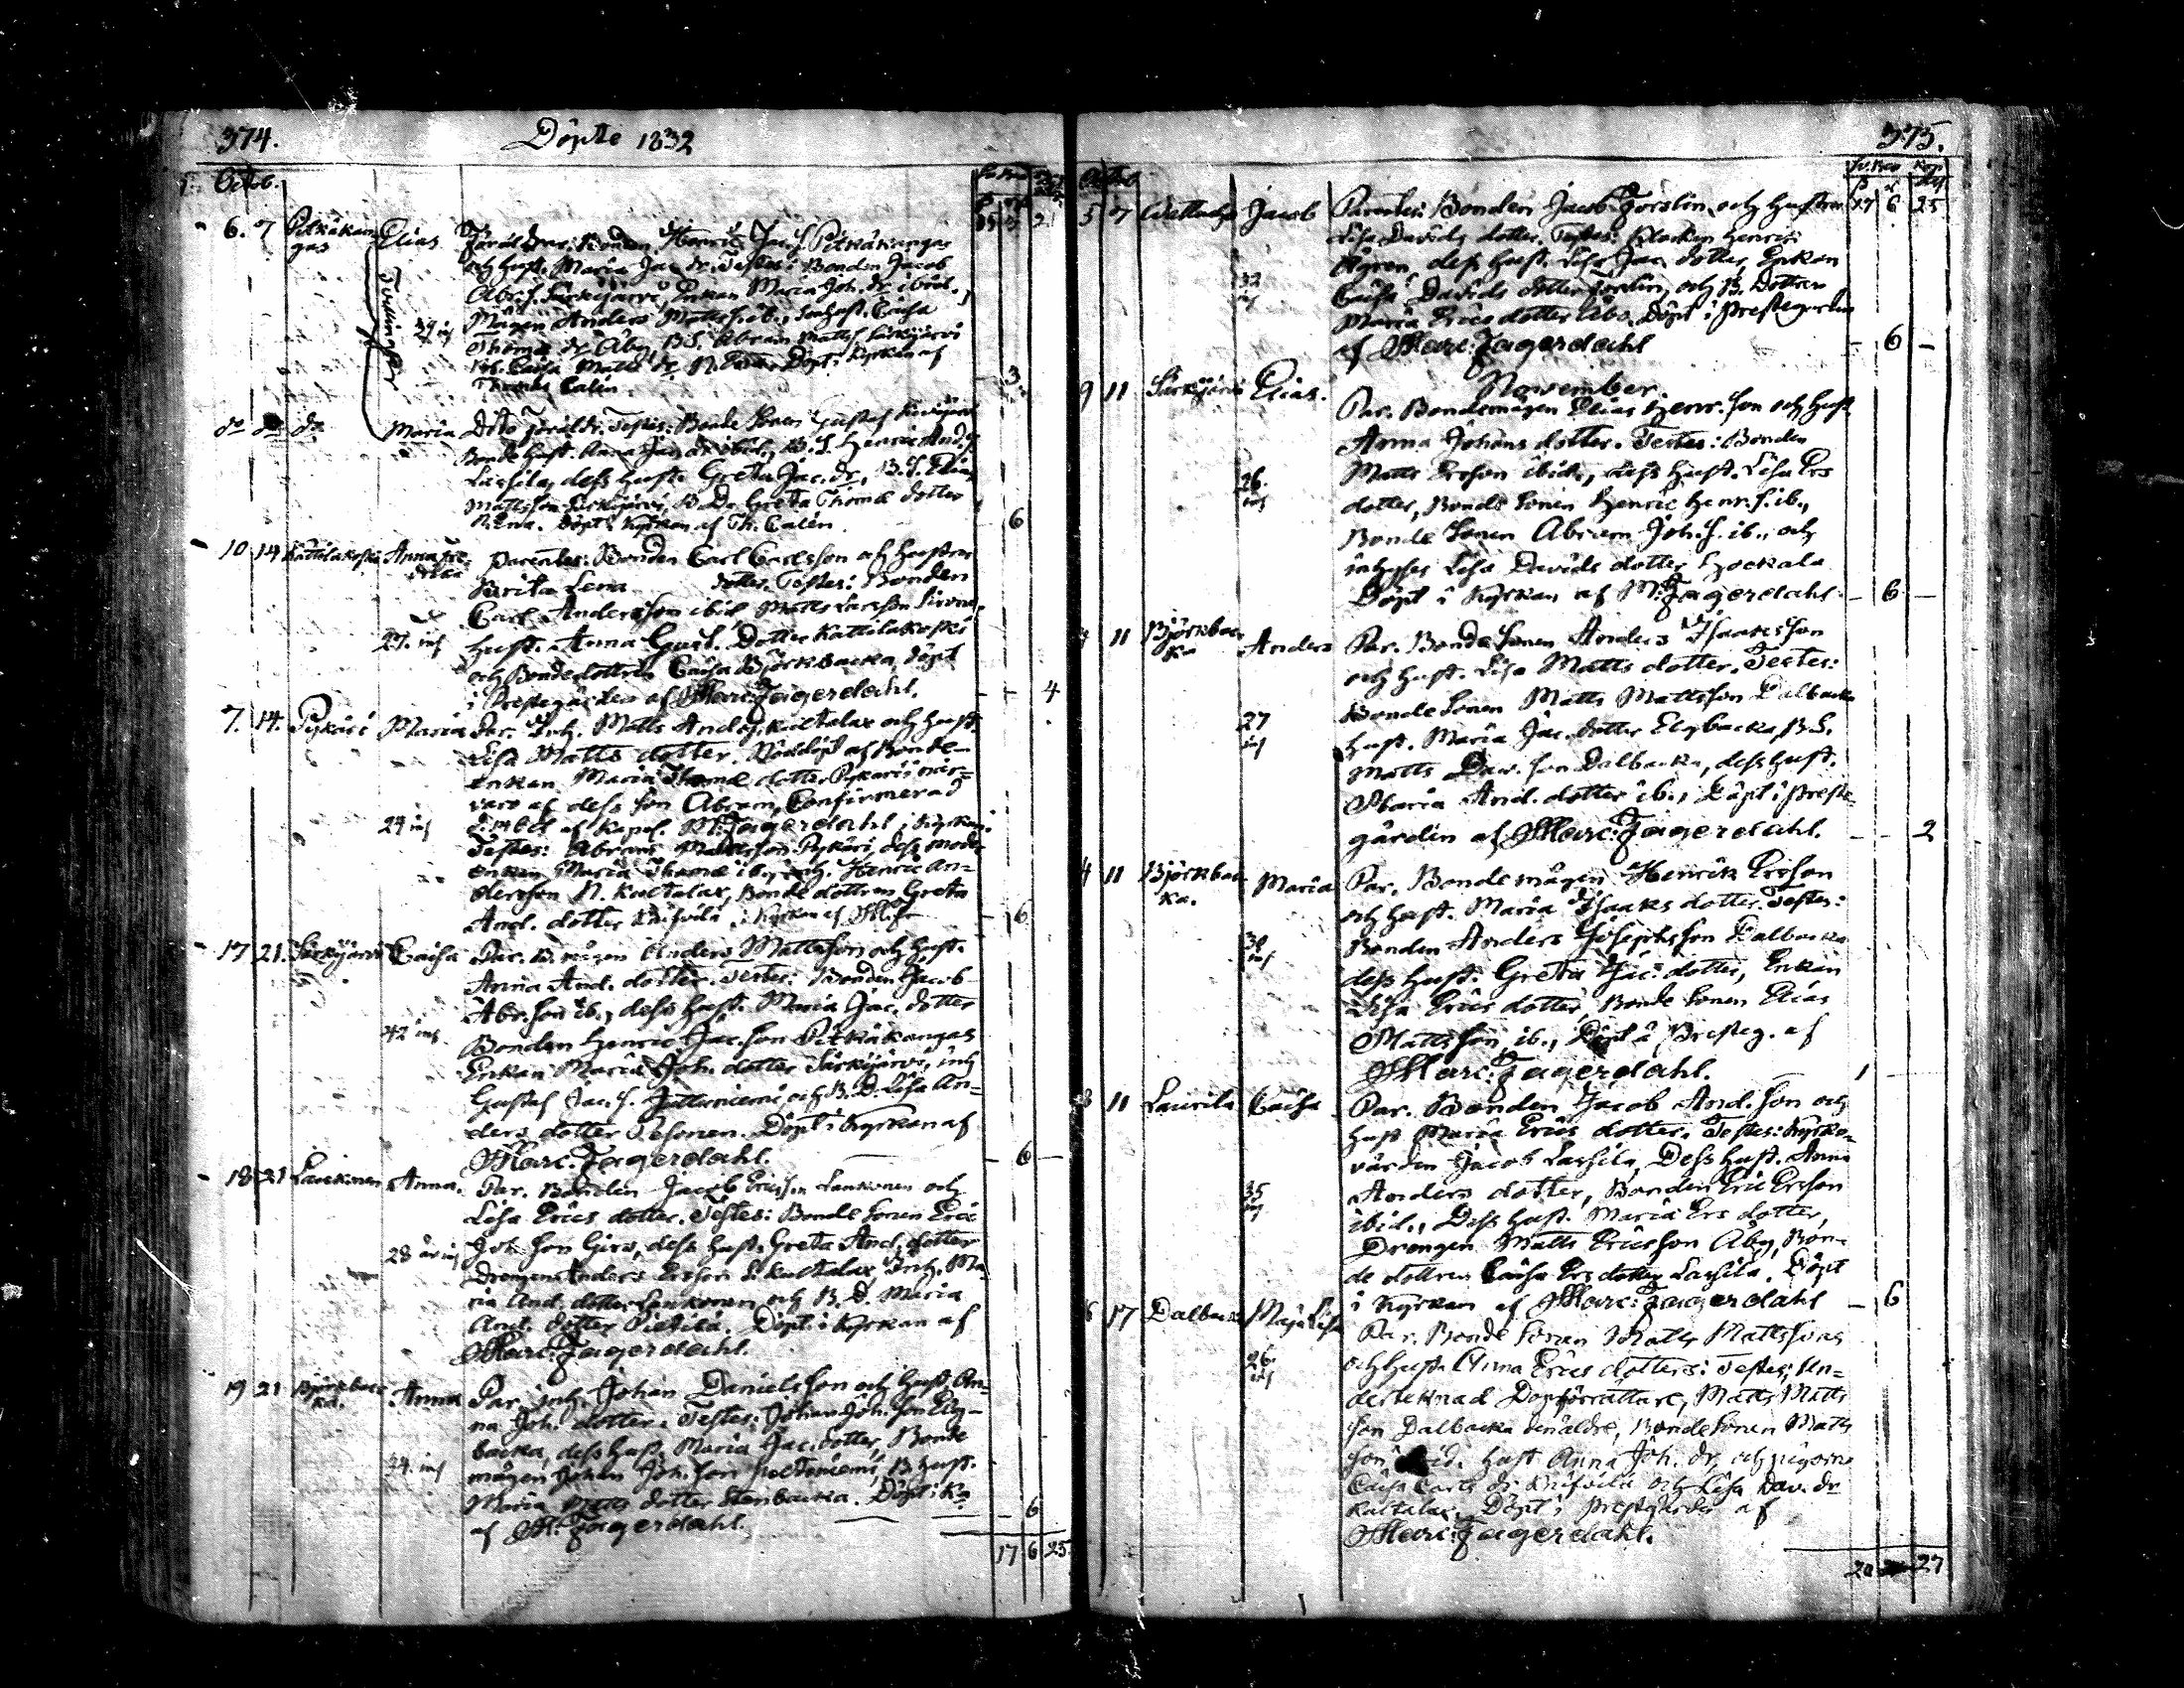 374.
Döpte 1832
Octob.
6. 7 Pitkäkangas Elias
Tvillingar
Föräldrar: Bonden Henric Jac. S. Pitkäkangas
och hust. Maria Jac. dr. Testes: Bonden Jacob
Abr. S. Särkijärvi, Enkan Maria Joh. dr. ibid.,
Mågen Anders Matts S. ib.,
29 in
Thomæ dr Åby, B.S. Abram Matts S. Särkijärvi
Caisa Matts dr. Döpt i Kyrkan af
Thomas Calén
3.
do do do Maria Dito Föräldr. Testes: Bonde Sonen Gustaf
Bonde hust. Anna Jac. dr ibid., B. S. Henric And. S.
Lassila, dess hust. Greta Jac. dr, B. S. Elias
Mattsson Särkijärvi, B. D. Greta Thomæ dotter
Döpt i Kyrkan af Th. Calén
6
10 14 Kattilakoski Anna Fredrika Parentes: Bonden Carl Carlsson och hustrun
Brita Lena dotter. Testes: Bonden
Carl Andersson ibid Matts Larsson
27. in hust. Anna Gust. Dotter Kattilakoski
och Bondedottren Caisa Björkbacka, döpt
i Prestegården af Marc: Fagerdahl.
4
7. 14. Pykäri Maria Par. Inh. Matts And. S. Kultalax och hust.
Lisa Matts dotter. Nöddöpt af Bonde-
enkan Maria Thomæ dotter Pykäri i när-
varo af dess son Abram, Confirmerad
29 in d. 14 Oct af Kapel. M: Fagerdahl i Kyrkan.
Testes: Abram Mattsson Pykäri dess moder
enkan Maria Thomæ ib., inh. Henric An-
dersson N. Kultalax, Bonde dottren Greta
And. dotter Knifsilä i Kyrkan af M. F.
6
17 21. Särkijärvi Caisa Par. B. mågen Anders Mattsson och hust.
Anna And. dotter. Testes: Bonden Jacob
Abr. son ib., dess hust. Maria Jac. dotter
42 in Bonden Henric Jac. son Pitkäkangas
Enkan Maria Joh. dotter Särkijärvi, inh
Gustaf Jac. S. och B. D. Lisa An-
ders dotter Pesonen. Döpt i Kyrkan af
Marc: Fagerdahl.
6
18 21 Laukonen Anna. Par. Bonden Jacob Ericsson Laukonen och
Lisa Erics dotter. Testes: Bonde Sonen Eric
Joh. Son Girs, dess hust. Greta And. dotter
28 år in Drängen Anders Ersson S. Kultalax, Inh. Ma-
ria And. dotter Laukonen och B. D. Maria
And. dotter Pietilä. Döpt i Kyrkan af
Marc: Fagerdahl.
19 21 Björkbacka. Anna Par. inh. Johan Danielsson och hust. An-
na Joh. dotter. Testes: Johan Joh. Son Elg-
backa, dess hust. Maria Jac. dotter, Bonde
24. in mågen Johan Joh. Son B. hust.
Maria Matts dotter Stenbacka. Döpt i Ka
af M. Fagerdahl.
6
17 6 25.
375.
5 7 Jacob Parentes: Bonden Jacob Forslin och hustrun 17 6 25
Lisa Davids dotter, Testes: Klockaren Henric
Ågren, dess hust. Lisa Jac. dotter, Enkan
32 in Caisa Davids dotter Forslin, och B. Dottren
Maria Erics dotter Åbo. Döpt i Prestegården
af Marc: Fagerdahl
6
November.
9 11 Särkijärvi Elias. Par. Bondemågen Elias Henr. son och hust
Anna Johans dotter. Testes: Bonden
Matts Ersson ibid., dess hust. Lisa Ers
26. in dotter, Bonde Sonen Henric Henr. S. ib.,
Bonde Sonen Abram Joh. S. ib., och
inhyses Lisa Davids dotter Hockala
Döpt i Kyrkan af M: Fagerdahl.
6
11 Björkbacka Anders Par. Bonde Sonen Anders Isaaksson
och hust. Lisa Matts dotter. Testes:
Bonde Sonen Matts Mattsson Dalbacka
27 in hust. Maria Jac. dotter Elgbacka, B.S.
Matts Dav. son Dalbacka, dess hust.
Maria And. dotter ib., Döpt i Preste-
gården af Marc: Fagerdahl.
2
4 11 Björkbacka. Maria Par. Bonde mågen Henrik Ersson
och hust. Maria Isaaks dotter. Testes:
30 in Bonden Anders Josephsson Dalbacka
dess hust. Greta Jac: dotter, Enkan
Lisa Erics dotter, Bonde Sonen Elias
Mattsson ib., Döpt i Presteg. af
Marc: Fagerdahl.
1
8 11 Laurila Caisa. Par. Bonden Jacob And. Son och
hust Maria Erics dotter. Testes: Kyrko-
värden Jacob Lassila, Dess hust. Anna
35 in Anders dotter, Bonden Eric Ersson
ibid., Dess hust. Maria Ers dotter,
Drängen Matts Ericsson Åby, Bon-
de dottren Caisa Ers dotter Lassila. Döpt
i Kyrkan af Marc: Fagerdahl
6
6 17 Dalbacka Maja Lisa Par. Bonde Sonen Matts Mattssons
26. in och hust. Anna Erics dotters: Testes: Un-
dertecknad Dopförrättare, Matts Matts
son Dalbacka den äldre, Bonde Sonen Matts
son ibid. hust Anna Joh. dr, och pigorna
Caisa Carls dr. Knifsilä och Lisa Dav. dr
Kultalax. Döpt i Prestgården af
Marc: Fagerdahl.
20 27